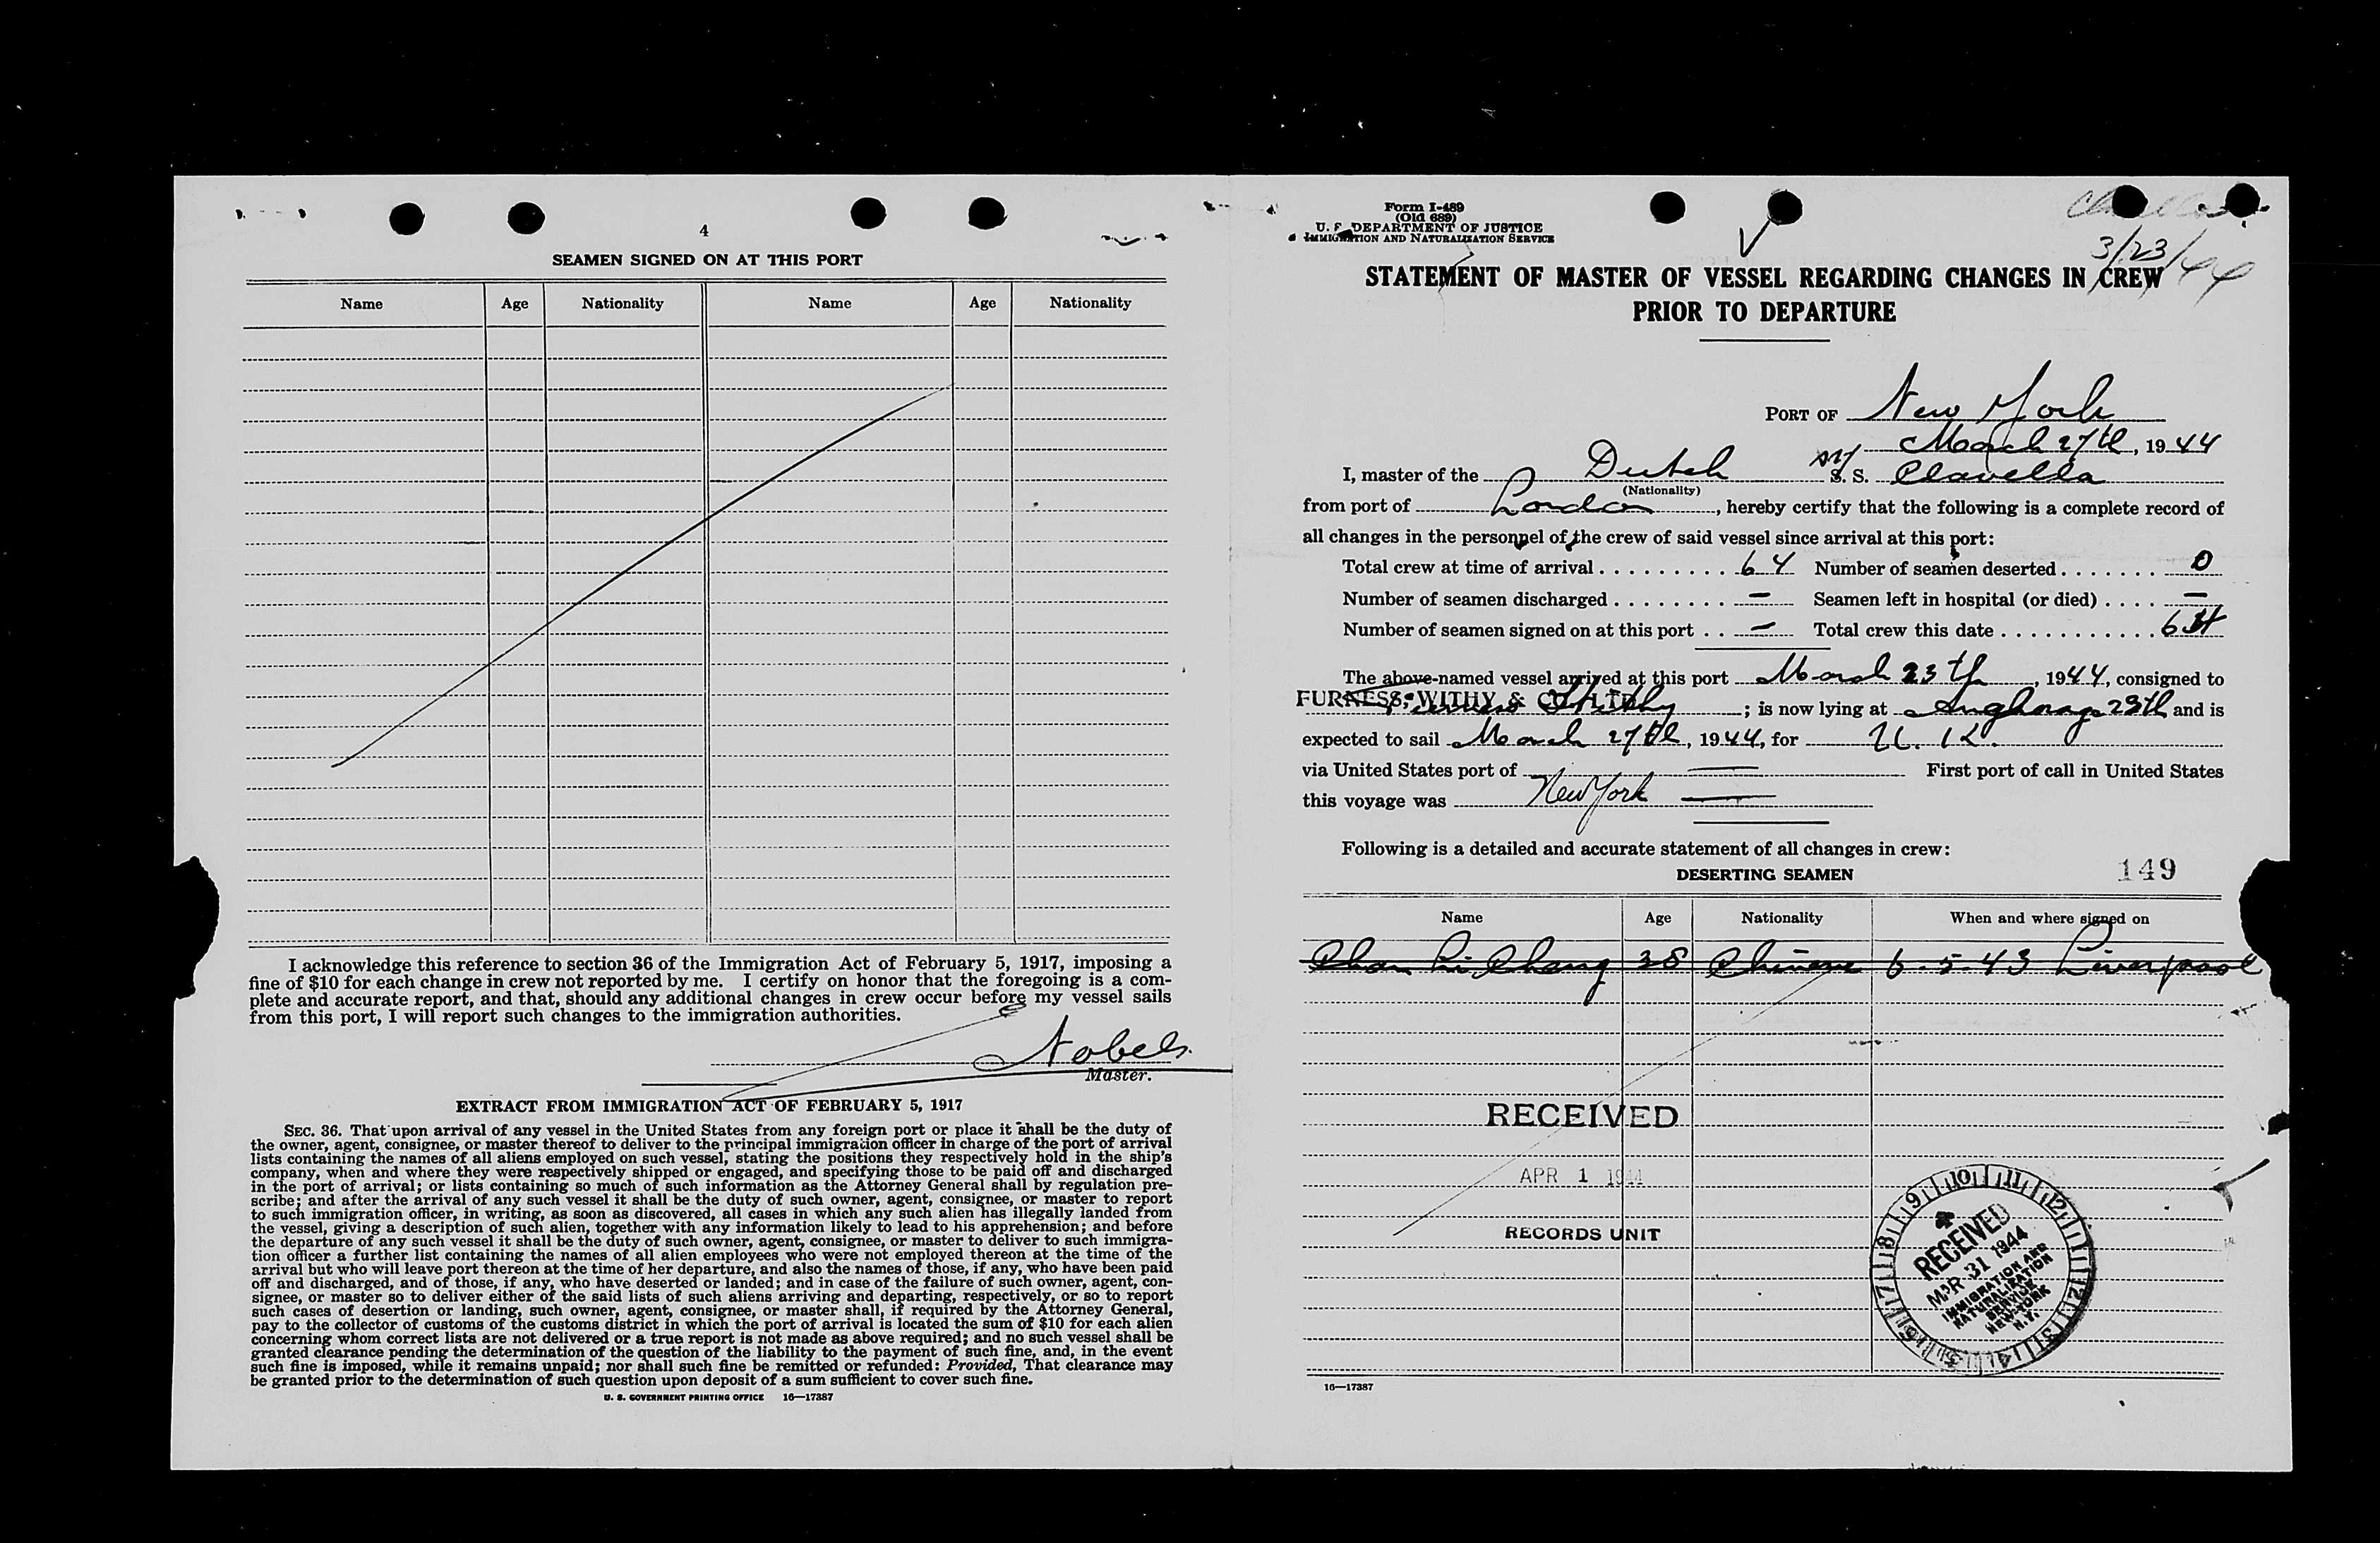 4
SEAMEN SIGNED ON AT THIS PORT
Name Age Nationality Name Age Nationality
I acknowledge this reference to section 36 of the Immigration Act of February 5, 1917, imposing a
fine of $10 for each change in crew not reported by me. I certify on honor that the foregoing is a com-
plete and accurate report, and that, should any additional changes in crew occur before my vessel sails
from this port, I will report such changes to the immigration authorities.
Nobels
Master.
EXTRACT FROM IMMIGRATION ACT OF FEBRUARY 5, 1917
SEC. 36. That upon arrival of any vessel in the United States from any foreign port or place it shall be the duty of
the owner, agent, consignee, or master thereof to deliver to the principal immigration officer in charge of the port of arrival
lists containing the names of all aliens employed on such vessel, stating the positions they respectively hold in the ship's
company, when and where they were respectively shipped or engaged, and specifying those to be paid off and discharged
in the port of arrival; or lists containing so much of such information as the Attorney General shall by regulation pre-
scribe; and after the arrival of any such vessel it shall be the duty of such owner, agent, consignee, or master to report
to such immigration officer, in writing, as soon as discovered, all cases in which any such alien has illegally landed from
the vessel, giving a description of such alien, together with any information likely to lead to his apprehension; and before
the departure of any such vessel it shall be the duty of such owner, agent, consignee, or master to deliver to such immigra-
tion officer a further list containing the names of all alien employees who were not employed thereon at the time of the
arrival but who will leave port thereon at the time of her departure, and also the names of those, if any, who have been paid
off and discharged, and of those, if any, who have deserted or landed; and in case of the failure of such owner, agent, con-
signee, or master so to deliver either of the said lists of such aliens arriving and departing, respectively, or so to report
such cases of desertion or landing, such owner, agent, consignee, or master shall, if required by the Attorney General,
pay to the collector of customs of the customs district in which the port of arrival is located the sum of $10 for each alien
concerning whom correct lists are not delivered or a true report is not made as above required; and no such vessel shall be
granted clearance pending the determination of the question of the liability to the payment of such fine, and, in the event
such fine is imposed, while it remains unpaid; nor shall such fine be remitted or refunded: Provided, That clearance may
be granted prior to the determination of such question upon deposit of a sum sufficient to cover such fine.
U. S. GOVERNMENT PRINTING OFFICE 16—17387
Form I-489
(Old 689)
U. S. DEPARTMENT OF JUSTICE
IMMIGRATION AND NATURALIZATION SERVICE
3/23/44
STATEMENT OF MASTER OF VESSEL REGARDING CHANGES IN CREW
PRIOR TO DEPARTURE
PORT OF New York
March 27th, 1944
I, master of the Dutch S. S. Clavella
(Nationality)
from port of London, hereby certify that the following is a complete record of
all changes in the personnel of the crew of said vessel since arrival at this port:
Total crew at time of arrival . . . . . . . . . . 64 Number of seamen deserted . . . . . . . 0
Number of seamen discharged . . . . . . . . — Seamen left in hospital (or died) . . . . —
Number of seamen signed on at this port . . — Total crew this date . . . . . . . . . . . 64
The above-named vessel arrived at this port March 23th, 1944, consigned to
FURNESS, WITHY & CO. LTD. ; is now lying at Anghorage 23th and is
expected to sail March 27th, 1944, for U. K.
via United States port of — First port of call in United States
this voyage was New York —
Following is a detailed and accurate statement of all changes in crew:
149
DESERTING SEAMEN
Name Age Nationality When and where signed on
Chan Li Chang 38 Chinese 6-5-43 Liverpool
RECEIVED
APR 1 1944
RECORDS UNIT
RECEIVED
MAR 31 1944
IMMIGRATION AND
NATURALIZATION
SERVICE
NEW YORK
N.Y.
16—17387